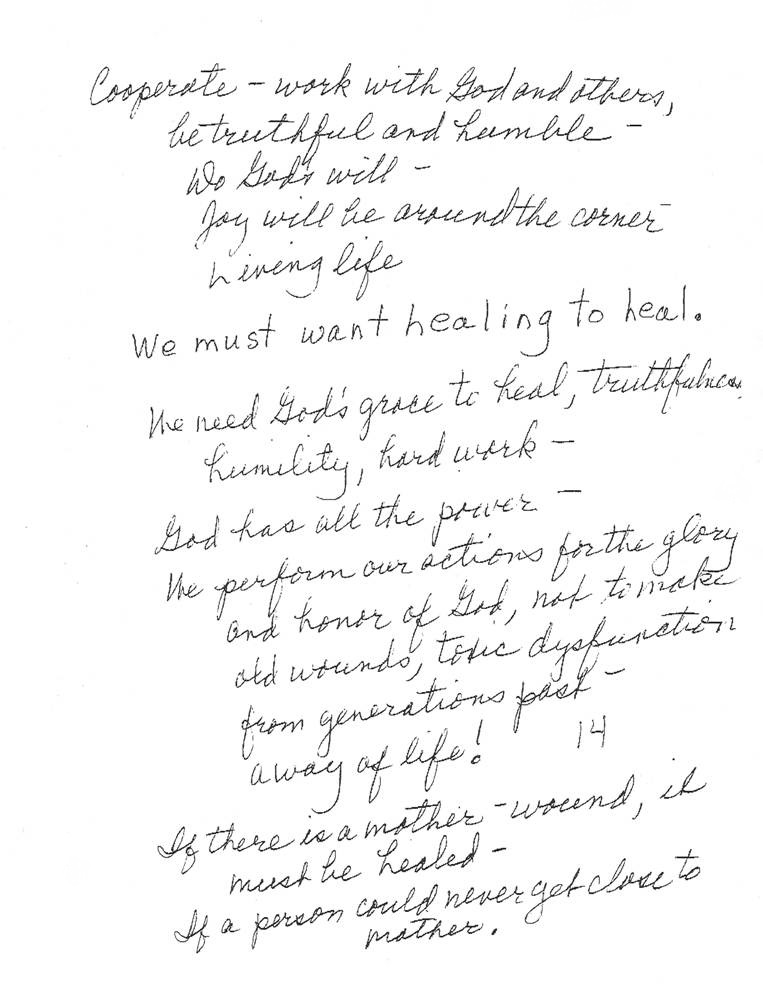 Cooperate – work with God and others,
be truthful and humble –
Do God's will –
Joy will be around the corner –
Living life
We must want healing to heal.
We need God's grace to heal, truthfulness,
humility, hard work –
God has all the power –
We perform our actions for the glory
and honor of God, not to make
old wounds, toxic dysfunction
from generations past –
a way of life!
14
If there is a mother-wound, it
must be healed –
If a person could never get close to
mother.